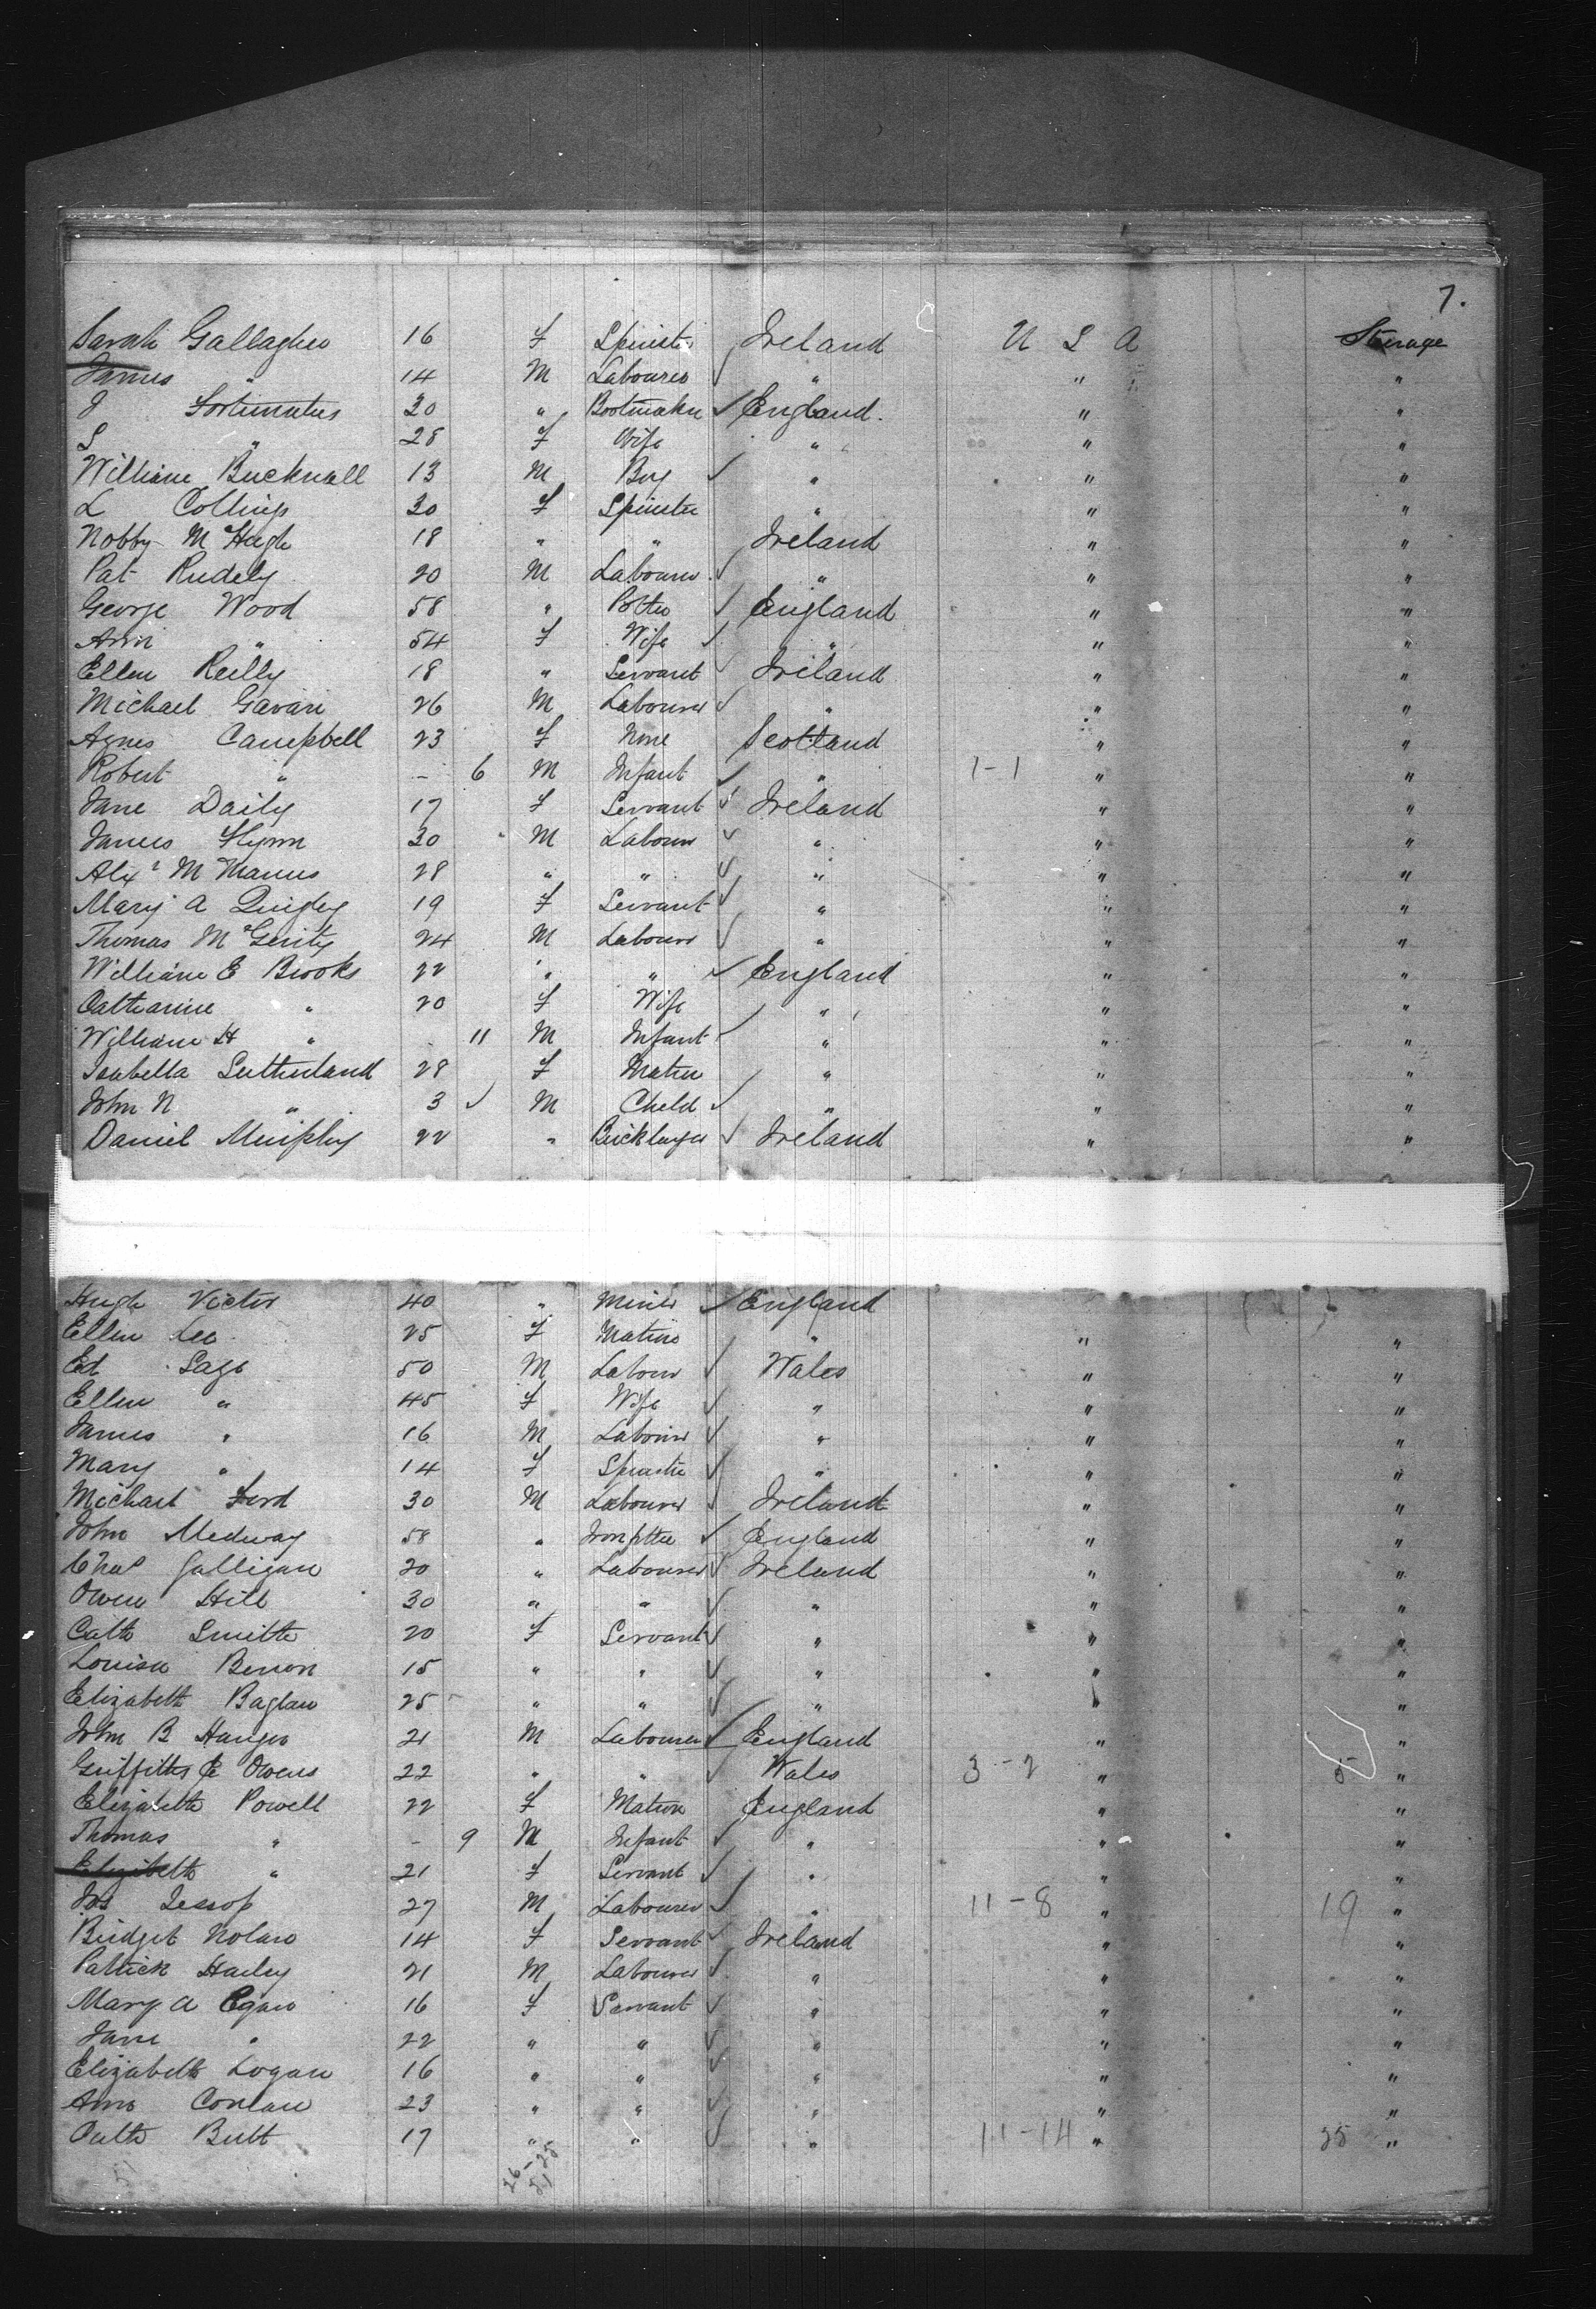 7.
Sarah Gallagher 16 F Spinster Ireland U S A Steerage
James " 14 M Labourer " " "
J Fortunatus 30 " Bootmaker England " "
S " 28 F Wife " " "
William Bucknall 13 M Boy " " "
L Collings 30 F Spinster " " "
Nobby McHugh 18 " " Ireland " "
Pat 20 M Labourer " " "
George Wood 58 " Potter England " "
Ann " 54 F Wife " " "
Ellen Reilly 18 " Servant Ireland " "
Michael Gavan 26 M Labourer " " "
Agnes Campbell 23 F None Scotland " "
Robert " - 6 M Infant " 1-1 " "
Jane Daily 17 F Servant Ireland " "
James Flynn 30 M Labourer " " "
Alexr McManus 28 " " " " "
Mary A Quigley 19 F Servant " " "
Thomas McGerity 24 M Labourer " " "
William E Brooks 22 " " England " "
Catharine " 20 F Wife " " "
William H " - 11 M Infant " " "
Isabella Sutherland 28 F Matron " " "
John N " 3 M Child " " "
Daniel Murphy 22 " Bricklayer Ireland " "
Hugh Victor 40 " Miner England
Ellen Lee 25 F Matron " " "
Ed Sage 50 M Labour Wales " "
Ellen " 45 F Wife " " "
James " 16 M Labourer " " "
Mary " 14 F Spinster " " "
Michael Ford 30 M Labourer Ireland " "
John Medway 58 " England " "
Chas Galligan 20 " Labourer Ireland " "
Owen Hill 30 " " " " "
Cath Smith 20 F Servant " " "
Louisa 15 " " " " "
Elizabeth Baglan 25 " " " " "
John B Hanger 21 M Labourer England " "
Griffiths E Owens 22 " " Wales 3-2 " 5 "
Elizabeth Powell 22 F Matron England " "
Thomas " - 9 M Infant " " "
Elizabeth " 21 F Servant " " "
Jos Jessop 27 M Labourer " 11-8 " 19 "
Bridget Nolan 14 F Servant Ireland " "
Patrick Harley 21 M Labourer " " "
Mary A Egan 16 F Servant " " "
Jane " 22 " " " " "
Elizabeth Logan 16 " " " " "
Ann Conlan 23 " " " " "
Cath Butt 17 " " " 11-14 " 25 "